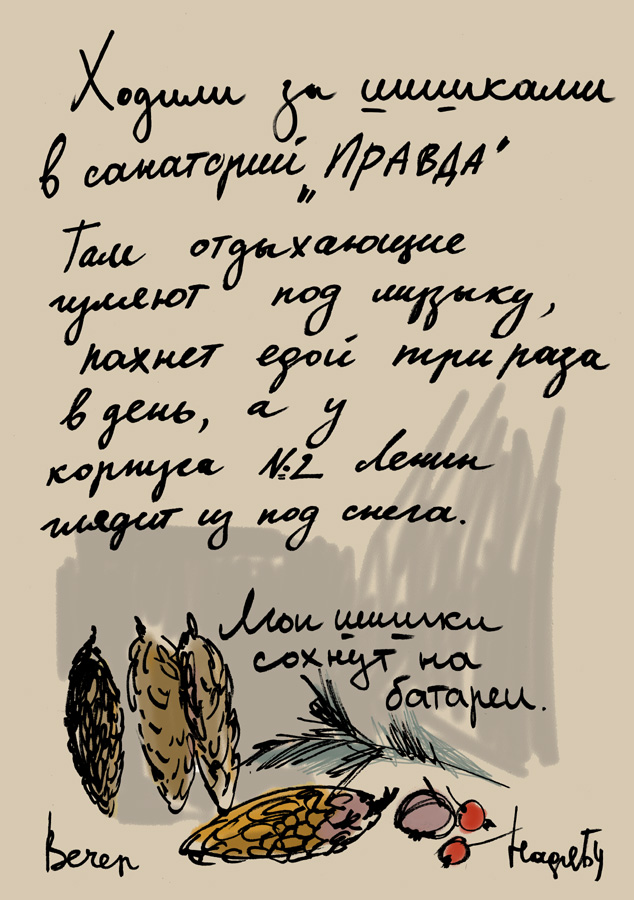 Ходили за шишками
в санаторий „ПРАВДА"
Там отдыхающие
гуляют под музыку,
пахнет едой три раза
в день, а у
корпуса №2 Ленин
глядит из под снега.
Мои шишки
сохнут на
батареи.
Вечер